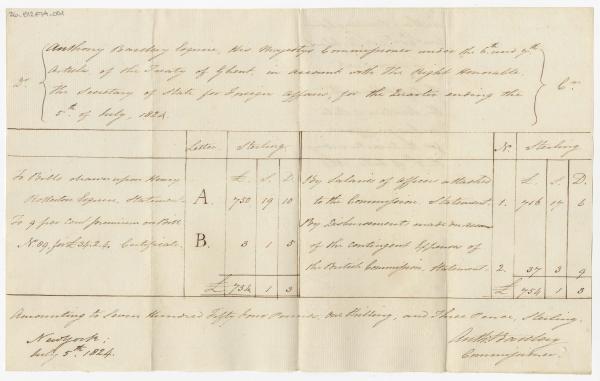 Anthony Barclay Esquire, His Majesty's Commissioner under the 6th and 7th
Article of the Treaty of Ghent, in account with the Right Honorable
Dr. the Secretary of State for Foreign Affairs, for the Quarter ending the Cr.
5th of July, 1824.
Letter. Sterling N. Sterling
£. S. D. £. S. D.
To Bills drawn upon Henry By Salaries of Officers attached
Rolleston Esquire, Statement A. 750 19 10 to the Commission Statement 1. 716 17 6
To 9 per Cent premium on Bill By Disbursements made on account
No. 89, for £34.2.4. Certificate B. 3 1 5 of the Contingent Expenses of
the British Commission, Statement 2. 37 3 9
£ 754 1 3 £ 754 1 3
Amounting to Seven Hundred Fifty Four Pounds, One Shilling, and Three Pence, Sterling.
New York;
July 5th 1824.
Anth: Barclay
Commissioner.